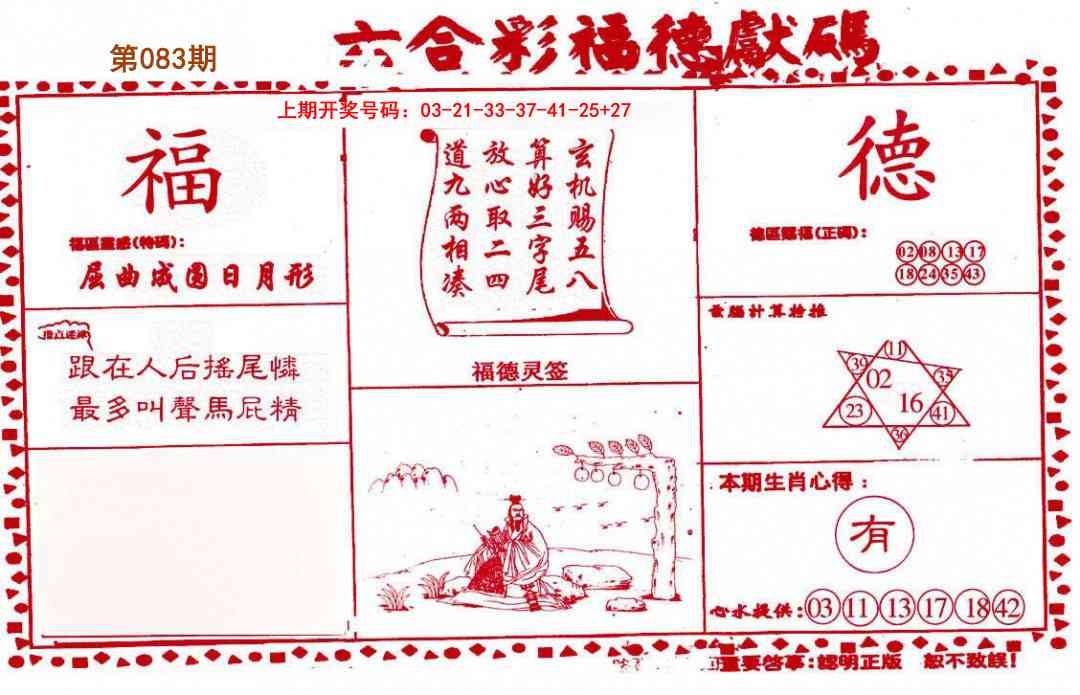 六合彩福德獻碼
第083期
上期开奖号码：03-21-33-37-41-25+27
福
福區靈感(特碼)：
屈曲成圆日月形
跟在人后摇尾憐
最多叫聲馬屁精
玄机赐五八
算好三字尾
放心取二四
道九两相凑
福德灵签
德
德區賜福(正碼)：
02 08 13 17
18 24 35 43
電腦計算特推
11
39 02 35
23 16 41
36
本期生肖心得：
有
心水提供：03 11 13 17 18 42
重要啓事：認明正版 恕不致誤！